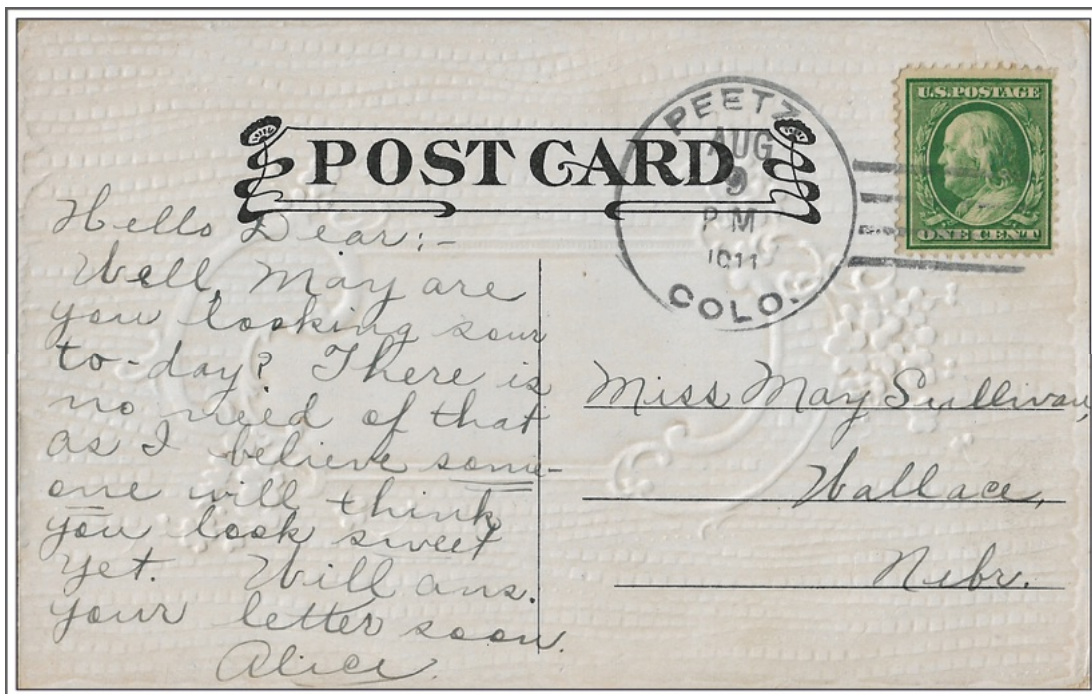 POST CARD
PEETZ
AUG
9
PM
1911
COLO.
U.S. POSTAGE
ONE CENT
Hello Dear:-
Well, May are
you looking sour
to-day? There is
no need of that
as I believe some-
one will think
you look sweet
yet. Will ans.
your letter soon.
Alice
Miss May Sullivan,
Wallace,
Nebr.